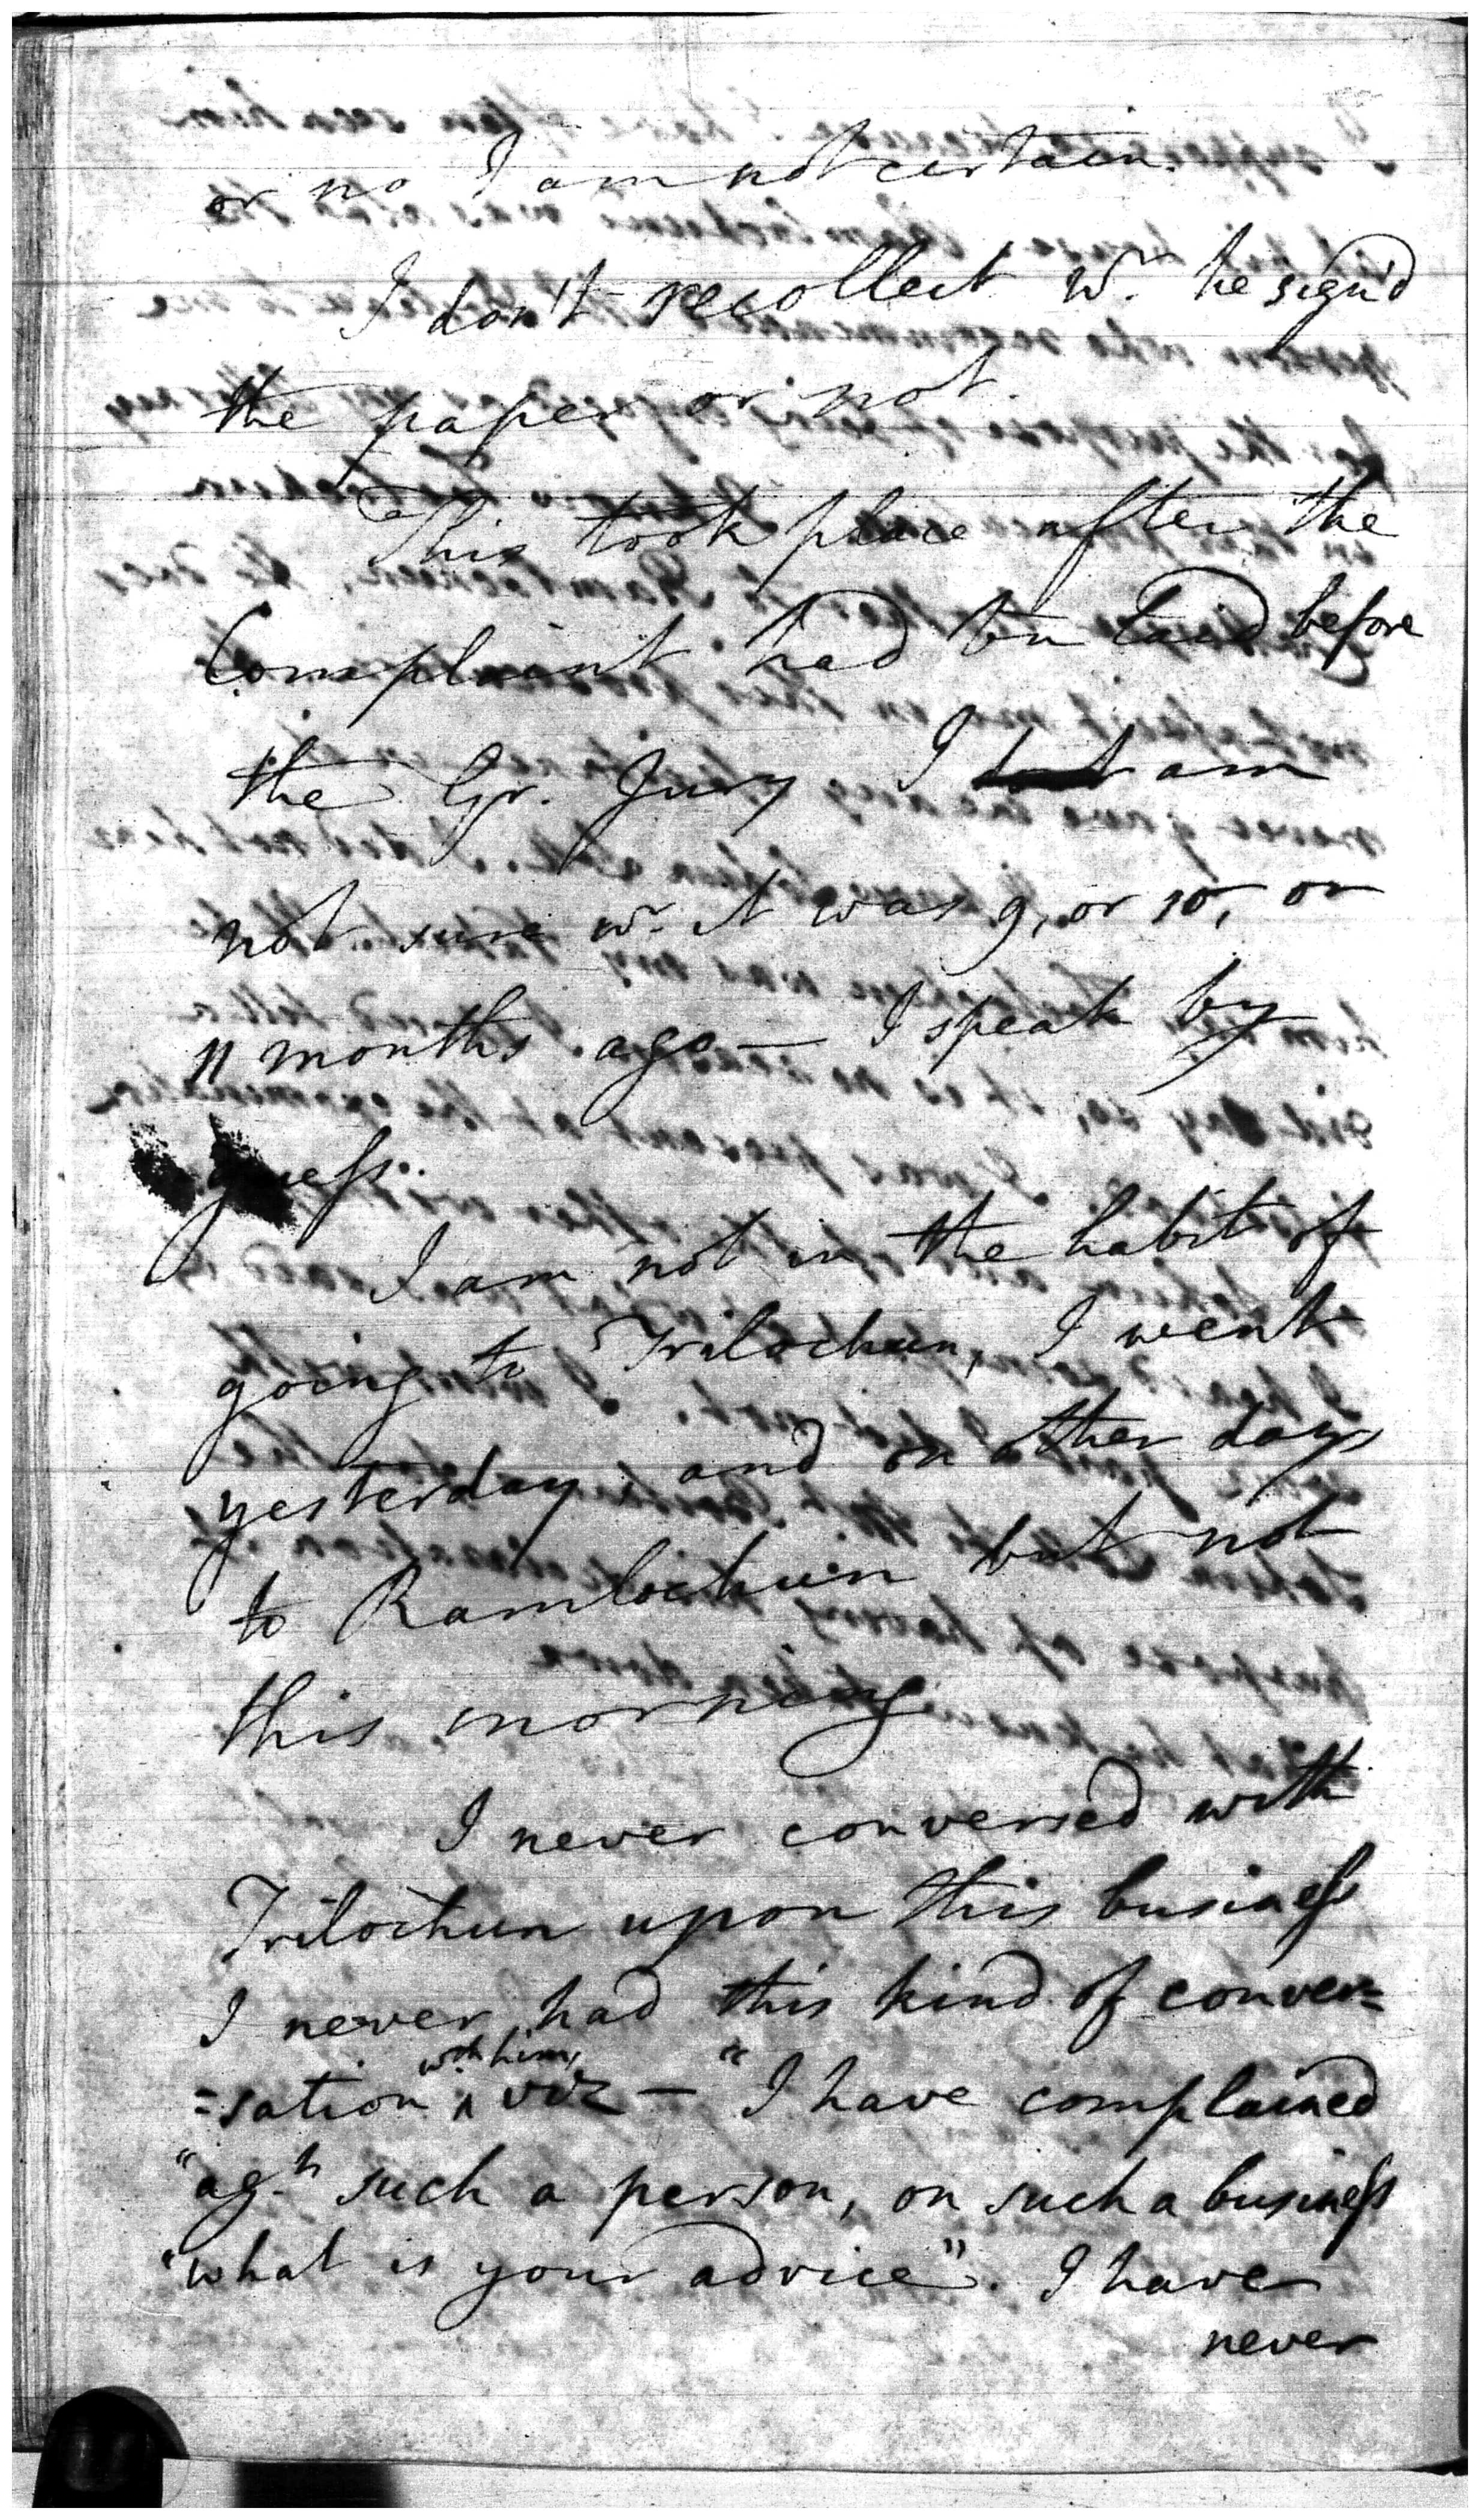 or no I am not certain.
I don't recollect wr. he sign'd
the paper or not.
This took place after the
Complaint had bn laid before
the Gr. Jury I am
not sure wr. it was 9, or 10, or
11 months ago — I speak by
guess.
I am not in the habit of
going to Trilochun, I went
yesterday and on other days
to Ramlochun but not
this morning
I never conversed with
Trilochun upon this business
I never had this kind of conver=
=sation with him, viz — "I have complained
"agt. such a person, on such a business
"what is your advice". I have
never